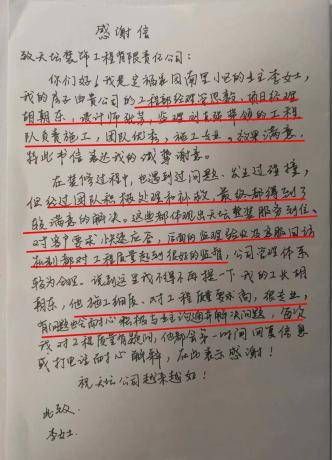 感谢信
致天坛装饰工程有限责任公司:
你们好!我是幸福家园南里小区的业主李女士,
我的房子由贵公司的工程部经理, 项目经理
胡朝东, 设计师张芳, 监理刘
队负责施工, 团队优秀, 施工专业, 效果满意,
特此书信表达我的诚挚谢意。
在装修过程中, 也遇到过问题, 发生过碰撞,
但经过团队积极处理和补救, 最终都得到了
较满意的解决。这些都体现出天坛整装服务到位,
对客户要求快速应答, 后面的监理验收及客服回访
机制都对工程质量起到很好的监督, 公司管理体系
较为合理。说到这里我不得不再提一下我的工长胡
朝东, 他施工细, 对工程质量要求高, 很专业,
有问题也会耐心积极与业主沟通并解决问题, 每次
我对工程质量有疑问, 他都会第一时间回复信息
或打电话耐心解释, 在此表示感谢!
祝天坛公司越来越好!
此致
李女士